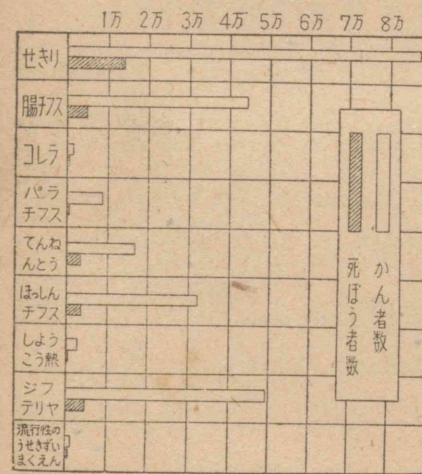 1万 2万 3万 4万 5万 6万 7万 8万
せきり
腸チフス
コレラ
パラ
チフス
てんね
んとう
ほっしん
チフス
しよう
こう熱
ジフ
テリヤ
流行性の
うせきずい
まくえん
かん者数
死ぼう者数